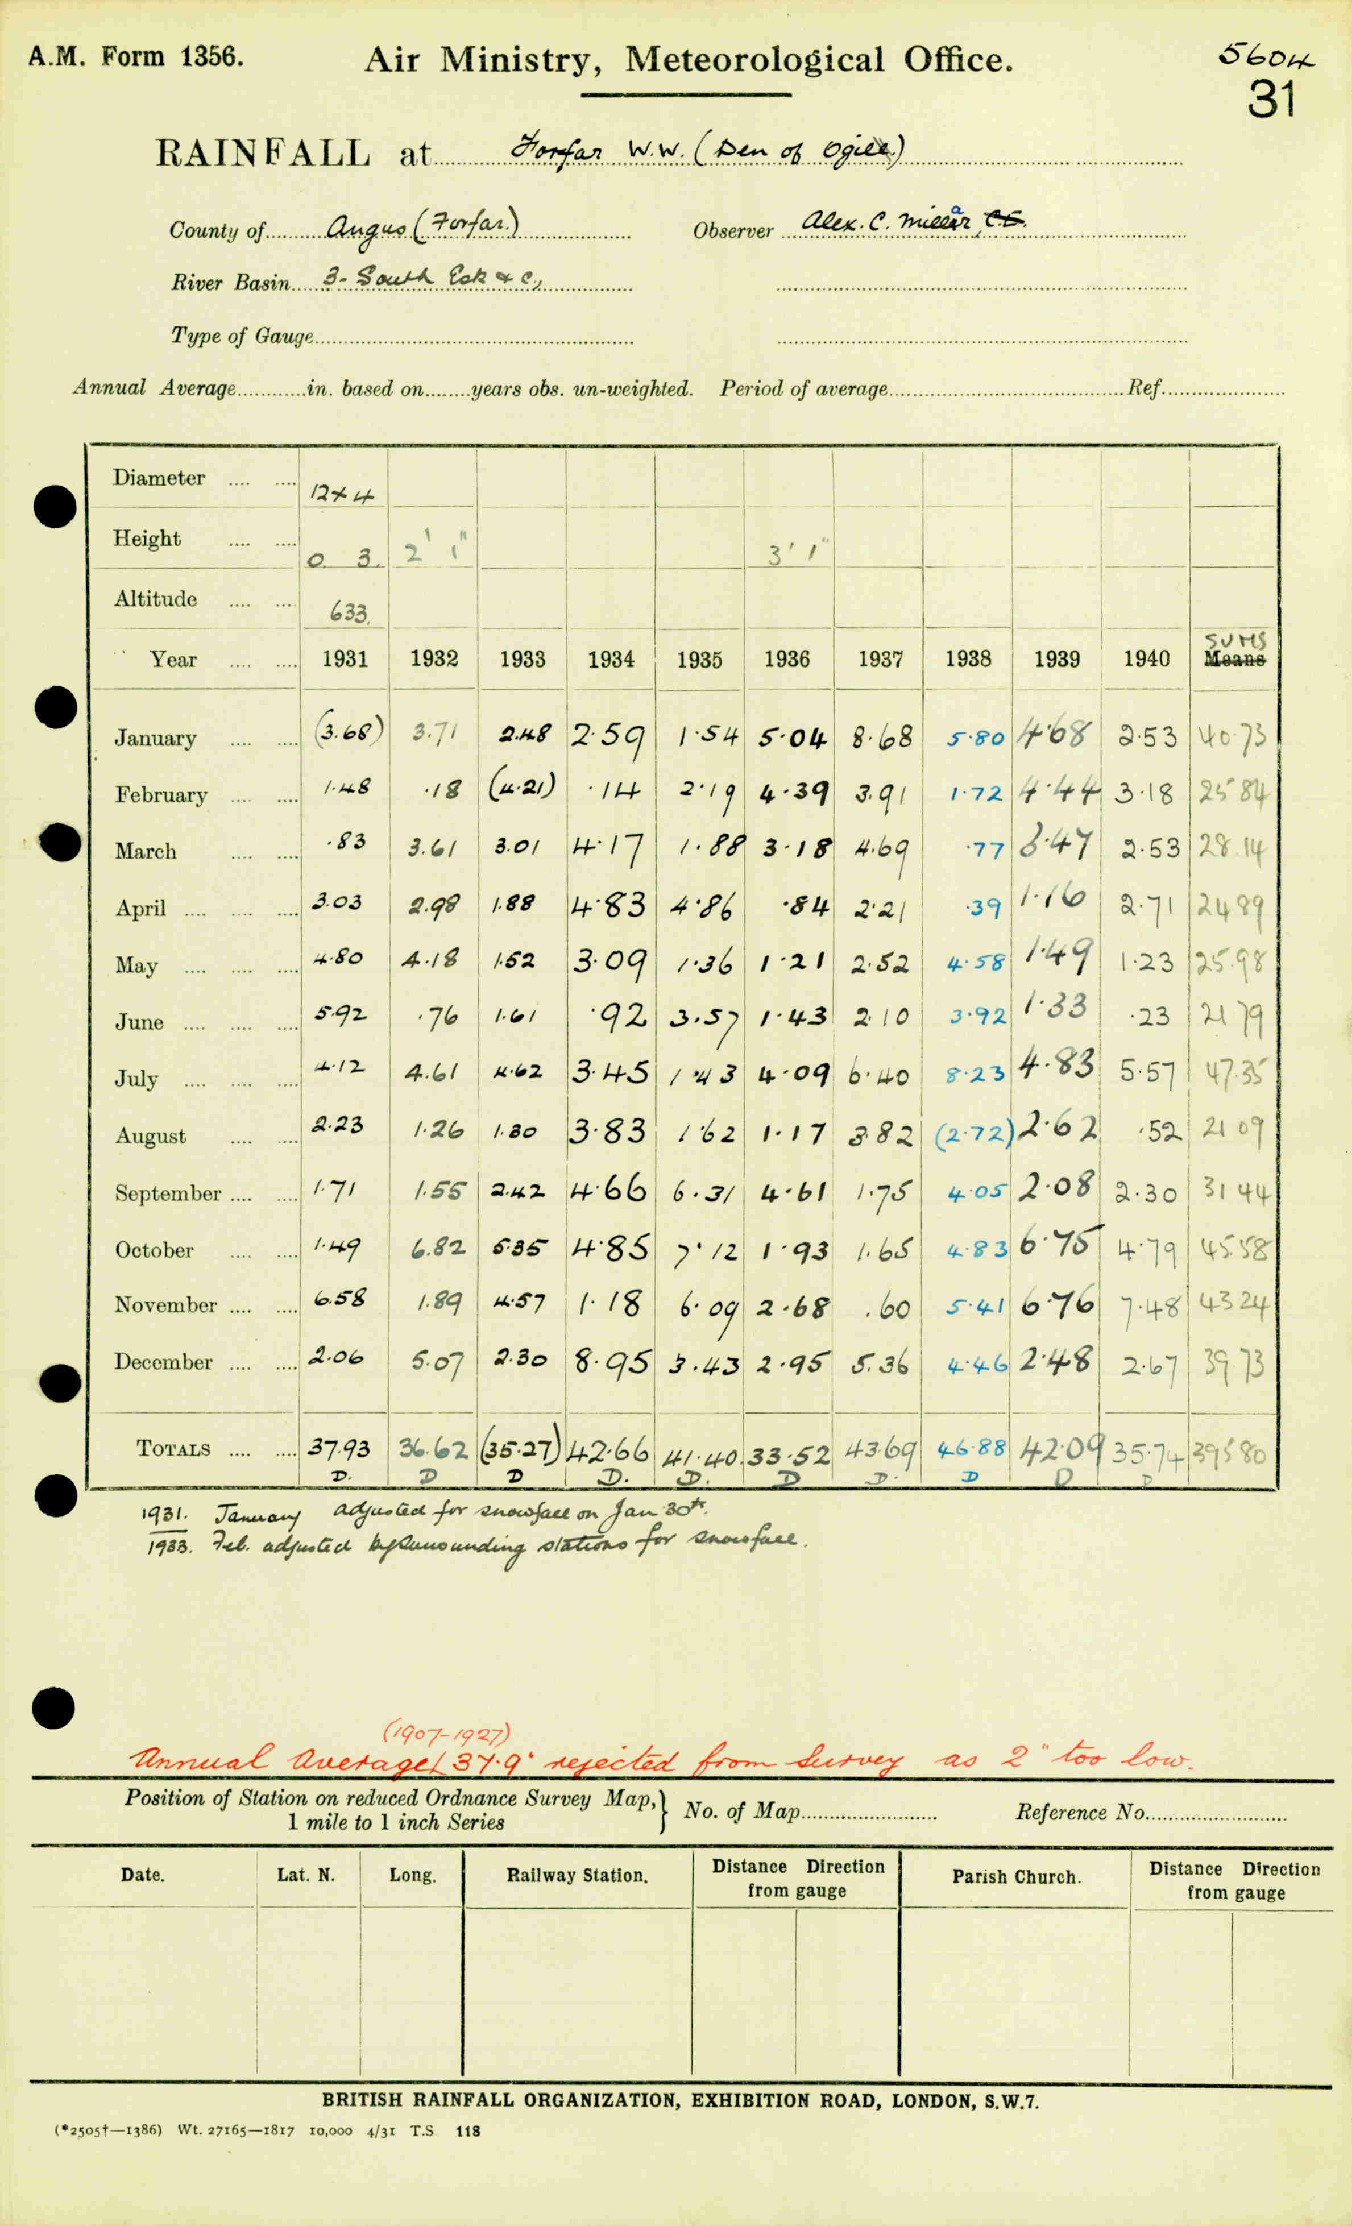 A.M. Form 1356.
Air Ministry, Meteorological Office.
5604
31
RAINFALL at Forfar W.W. (Den of Ogil)
County of Angus (Forfar)
Observer Alex. C. Millar, C.E.
River Basin 3- South Esk & c,
Type of Gauge
Annual Average in. based on years obs. un-weighted. Period of average Ref.
Diameter 12x4
Height 0 3. 2' 1" 3' 1"
Altitude 633.
SUMS
Year 1931 1932 1933 1934 1935 1936 1937 1938 1939 1940 Means
January (3.68) 3.71 2.48 2.59 1.54 5.04 8.68 5.80 4.68 2.53 40.73
February 1.48 .18 (4.21) .14 2.19 4.39 3.91 1.72 4.44 3.18 25 84
March .83 3.61 3.01 4.17 1.88 3.18 4.69 .77 3.47 2.53 28.14
April 3.03 2.98 1.88 4.83 4.86 .84 2.21 .39 1.16 2.71 24 89
May 4.80 4.18 1.52 3.09 1.36 1.21 2.52 4.58 1.49 1.23 25.98
June 5.92 .76 1.61 .92 3.57 1.43 2.10 3.92 1.33 .23 21 79
July 4.12 4.61 4.62 3.45 1.43 4.09 6.40 8.23 4.83 5.57 47.35
August 2.23 1.26 1.30 3.83 1.62 1.17 3.82 (2.72) 2.62 .52 21 09
September 1.71 1.55 2.42 4.66 6.31 4.61 1.75 4.05 2.08 2.30 31 44
October 1.49 6.82 5.35 4.85 7.12 1.93 1.65 4.83 6.75 4.79 45.58
November 6.58 1.89 4.57 1.18 6.09 2.68 .60 5.41 6.76 7.48 43 24
December 2.06 5.07 2.30 8.95 3.43 2.95 5.36 4.46 2.48 2.67 39 73
TOTALS 37.93 36.62 (35.27) 42.66 41.40. 33.52 43.69 46.88 42.09 35.74 395 80
D. D D D. D. D D. D D D
1931. January adjusted for snowfall on Jan 30th.
1933. Feb. adjusted by surrounding stations for snowfall.
(1907-1927)
Annual Average 37.9" rejected from Survey as 2" too low.
Position of Station on reduced Ordnance Survey Map,
1 mile to 1 inch Series
No. of Map
Reference No.
Date. Lat. N. Long. Railway Station. Distance Direction from gauge Parish Church. Distance Direction from gauge
BRITISH RAINFALL ORGANIZATION, EXHIBITION ROAD, LONDON, S.W.7.
(*2505†—1386) Wt. 27165—1817 10,000 4/31 T.S 118